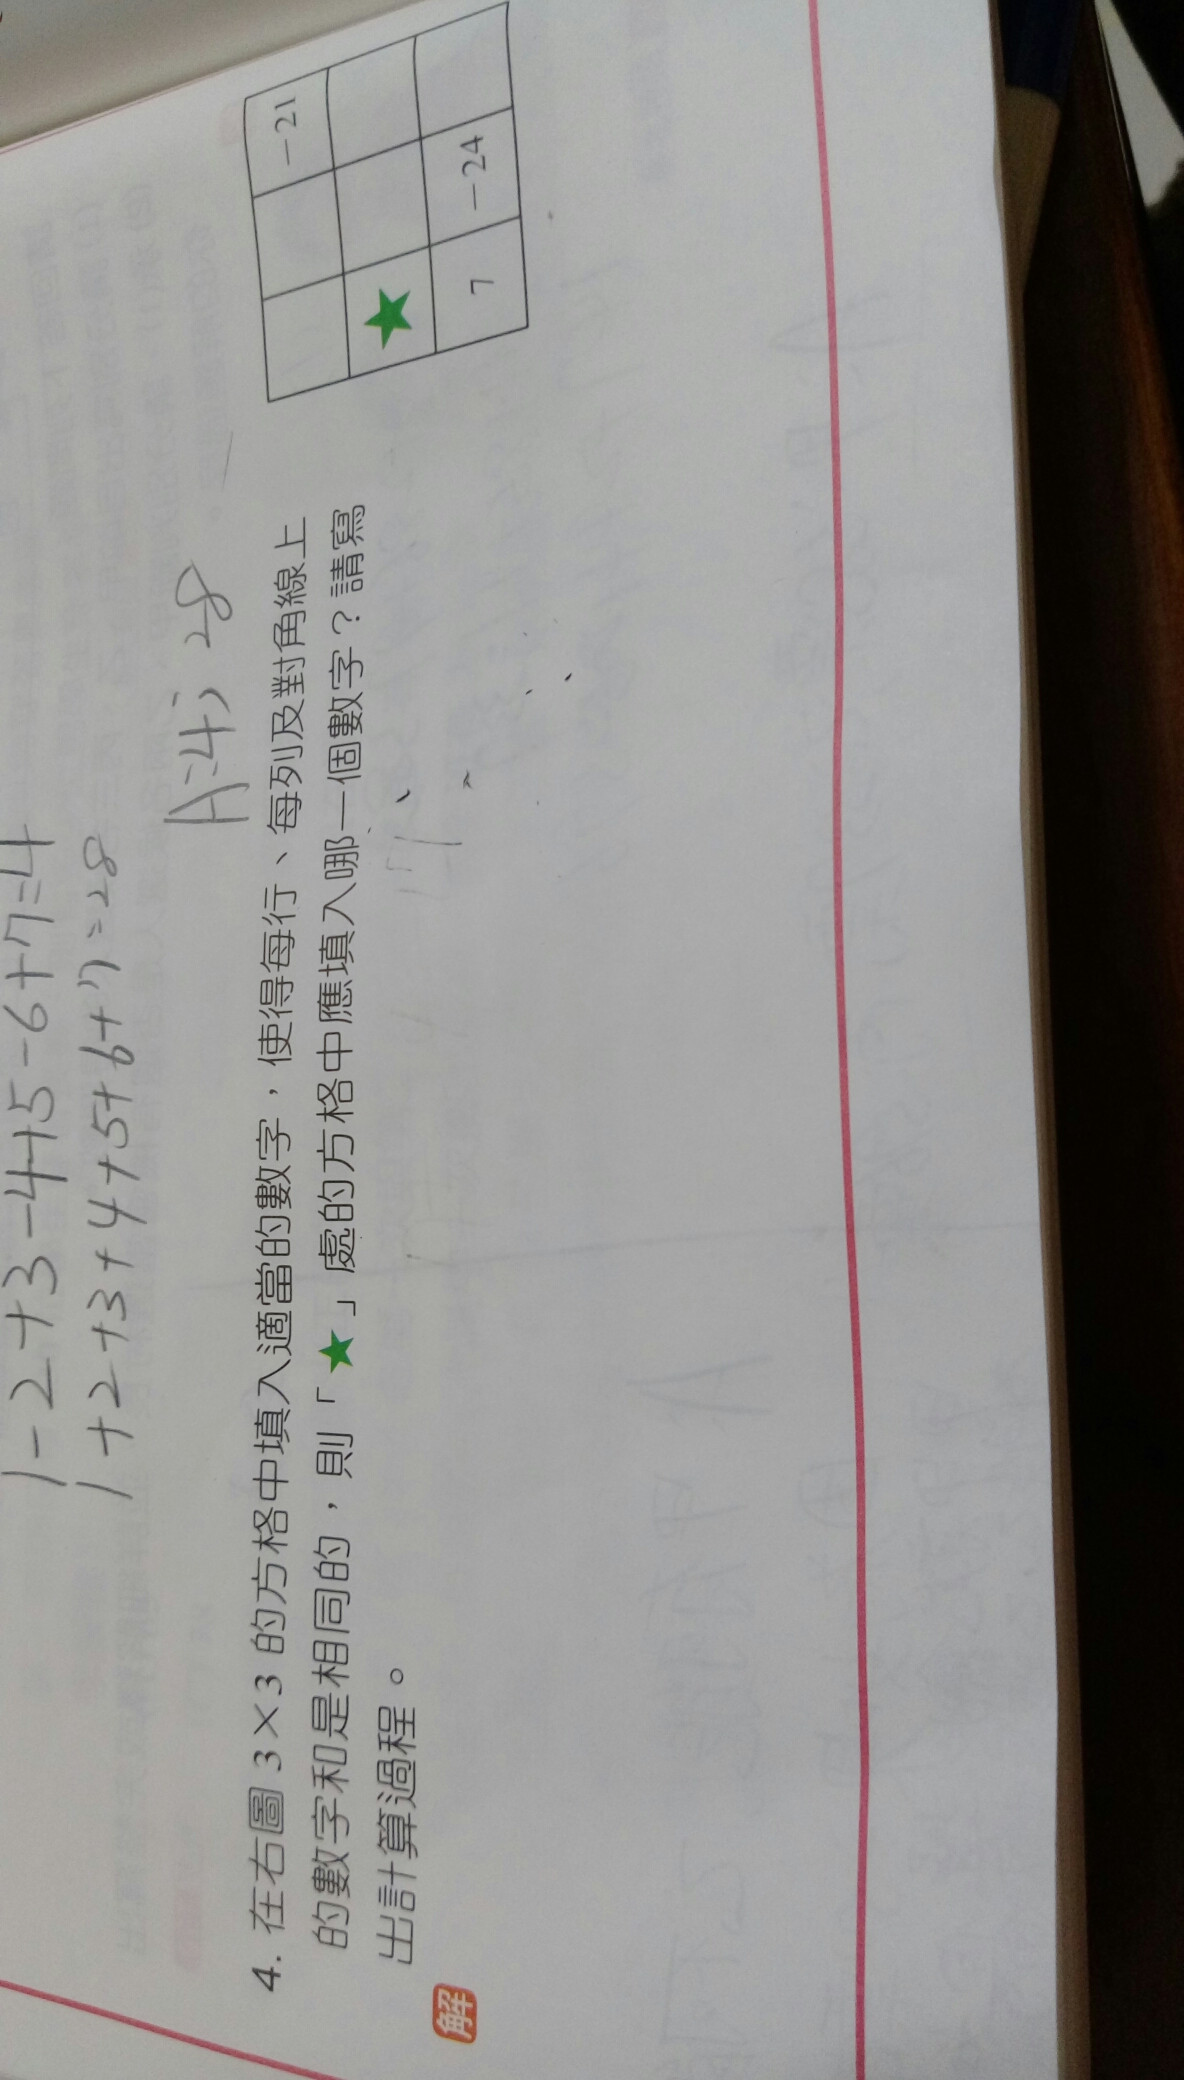 1-2+3-4+5-6+7=4
1+2+3+4+5+6+7=28
A:4,28
4. 在右圖 3×3 的方格中填入適當的數字,使得每行、每列及對角線上
的數字和是相同的,則「★」處的方格中應填入哪一個數字?請寫
出計算過程。
-21
★
7 -24
解